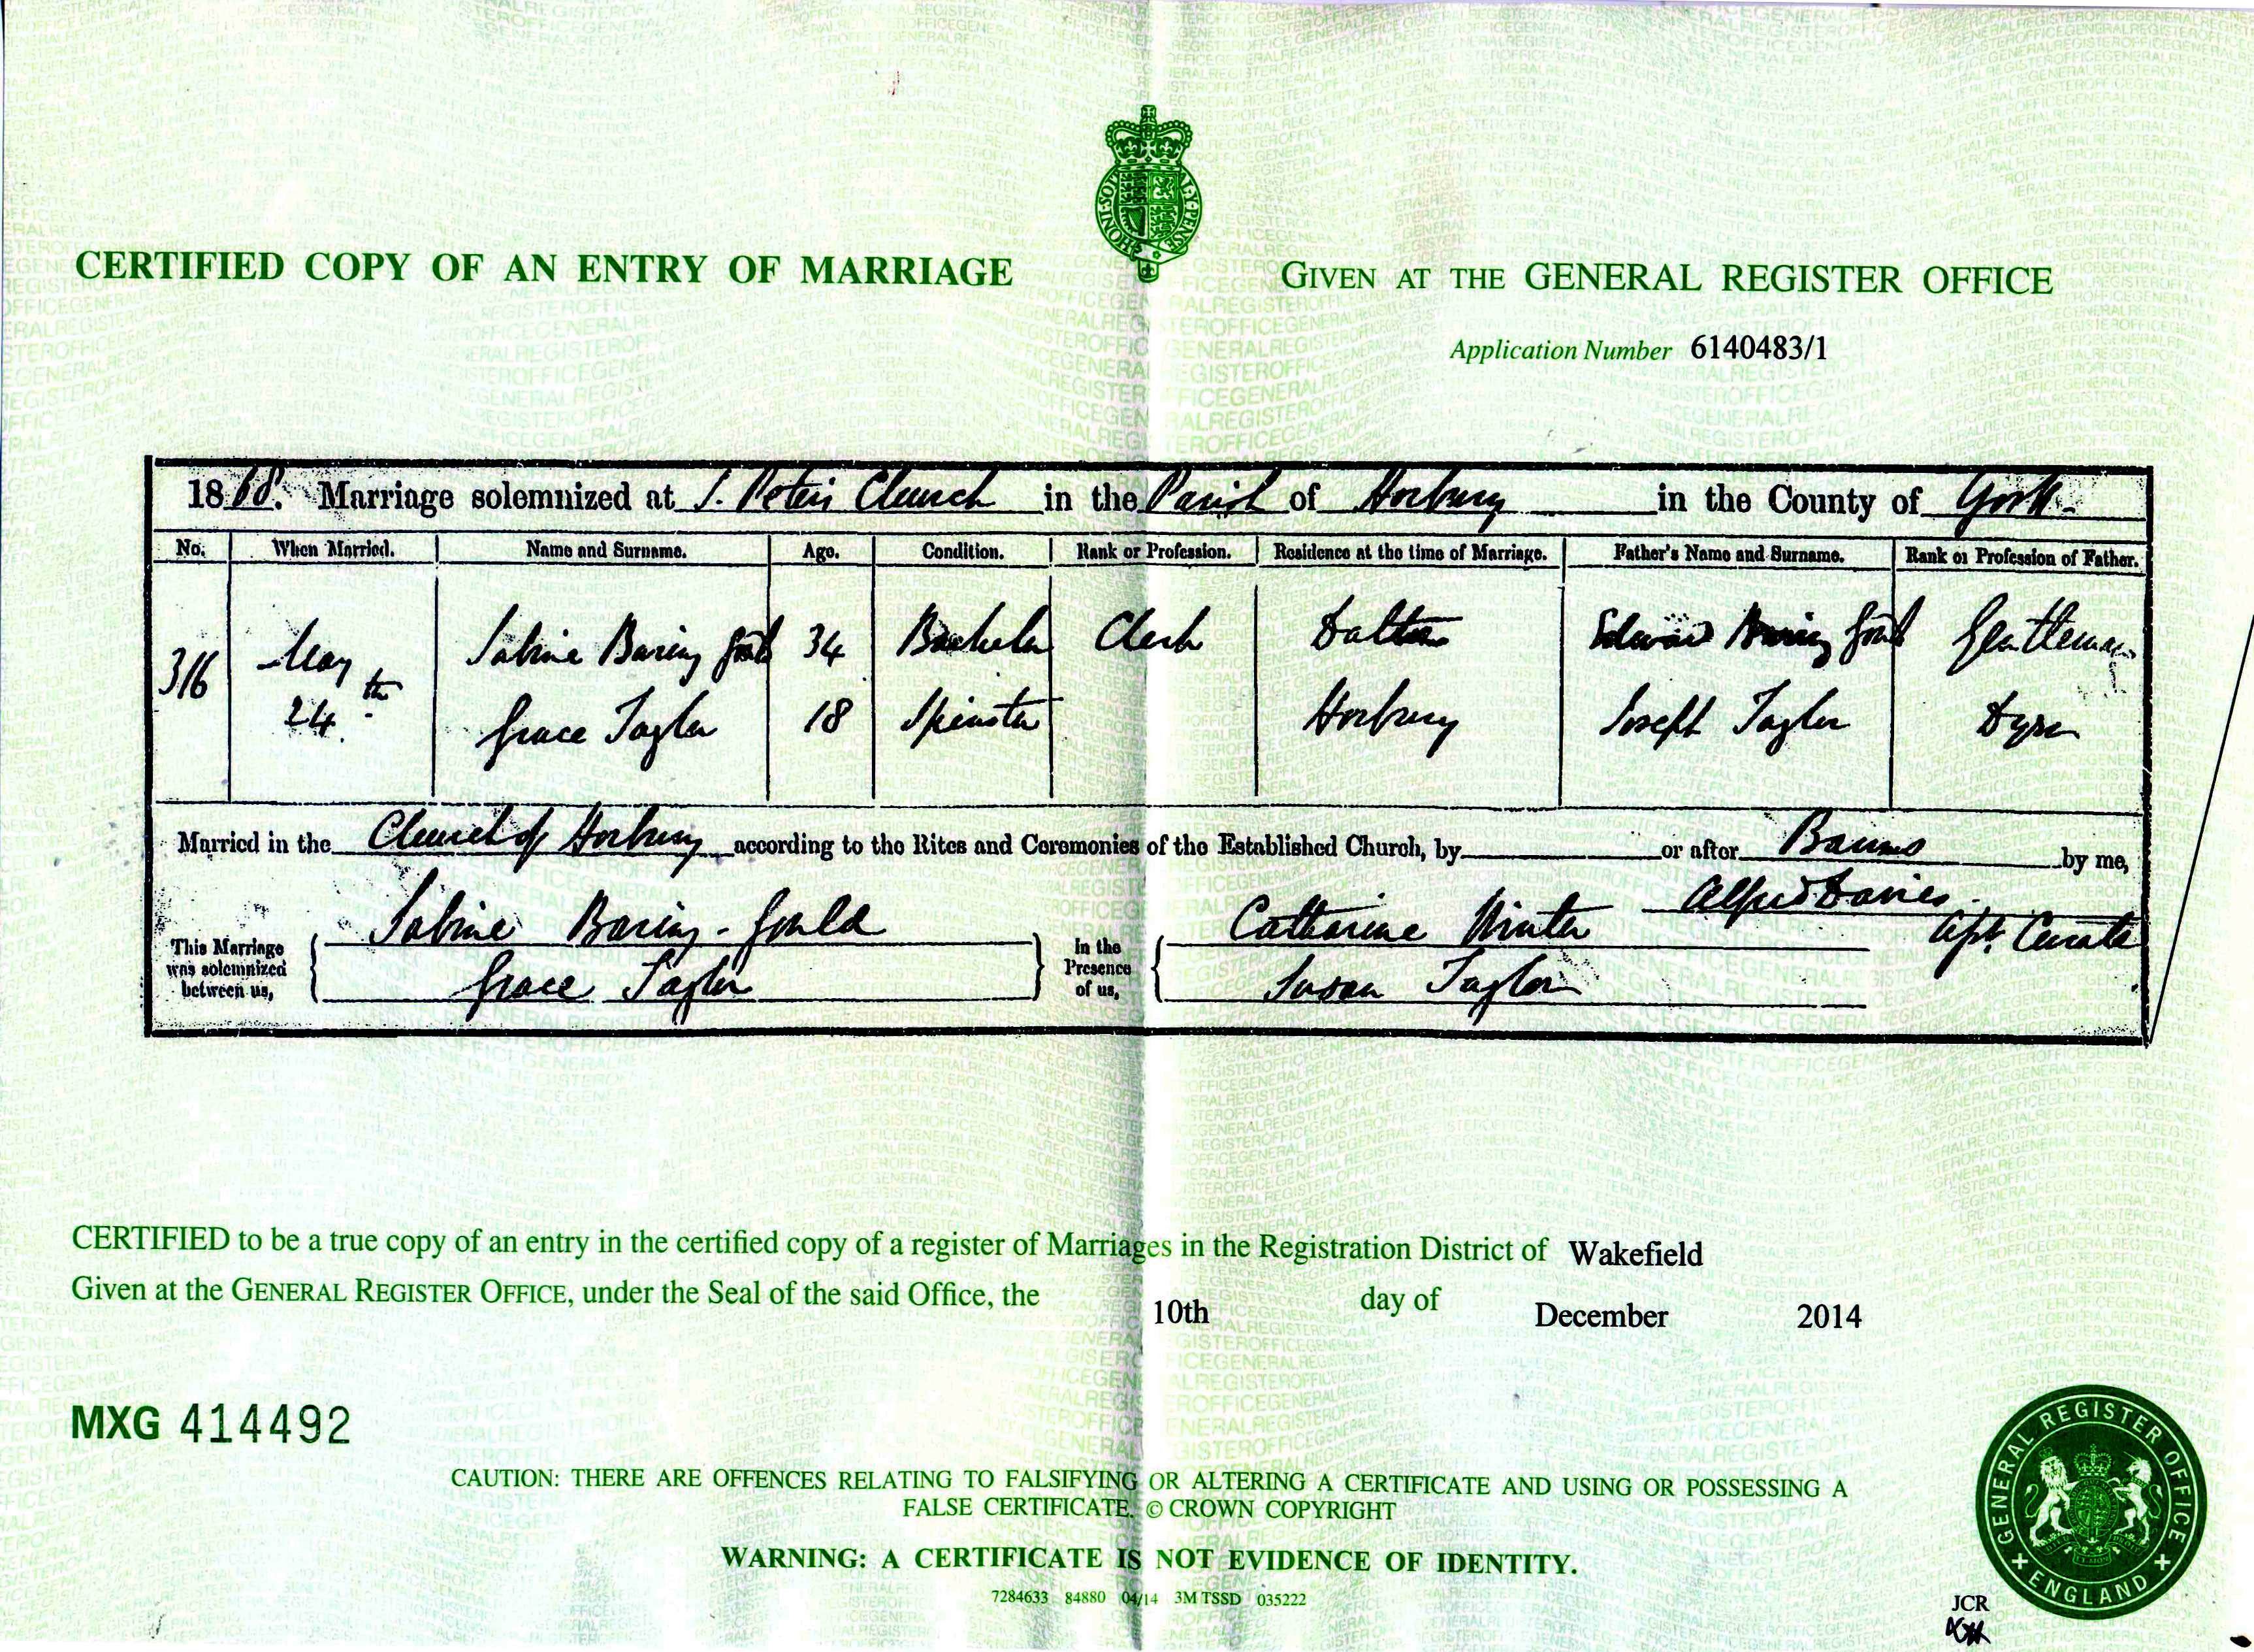 CERTIFIED COPY OF AN ENTRY OF MARRIAGE
GIVEN AT THE GENERAL REGISTER OFFICE
Application Number 6140483/1
1868. Marriage solemnized at S. Peters Church in the Parish of Horbury in the County of York.
No. When Married. Name and Surname. Age. Condition. Rank or Profession. Residence at the time of Marriage. Father's Name and Surname. Rank or Profession of Father.
316 May 24th. Sabine Baring Gould 34 Bachelor Clerk Dalton Edward Baring Gould Gentleman
Grace Taylor 18 Spinster Horbury Joseph Taylor Dyer
Married in the Church of Horbury according to the Rites and Ceremonies of the Established Church, by or after Banns by me,
Alfred Davies
This Marriage was solemnized between us, Sabine Baring-Gould In the Presence of us, Catharine Winter Curate
Grace Taylor Susan Taylor
CERTIFIED to be a true copy of an entry in the certified copy of a register of Marriages in the Registration District of Wakefield
Given at the GENERAL REGISTER OFFICE, under the Seal of the said Office, the 10th day of December 2014
MXG 414492
CAUTION: THERE ARE OFFENCES RELATING TO FALSIFYING OR ALTERING A CERTIFICATE AND USING OR POSSESSING A
FALSE CERTIFICATE. © CROWN COPYRIGHT
WARNING: A CERTIFICATE IS NOT EVIDENCE OF IDENTITY.
7284633 84880 04/14 3M TSSD 035222
GENERAL REGISTER OFFICE
ENGLAND
JCR